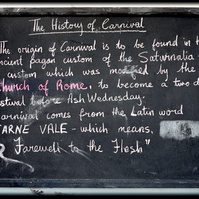 The History of Carnival
The origin of Carnival is to be found in
ancient pagan custom of the Saturnalia
custom which was modified by the
Church of Rome, to become a two
before Ash Wednesday.
Carnival comes from the Latin word
CARNE VALE - which means,
Farewell to the Flesh"